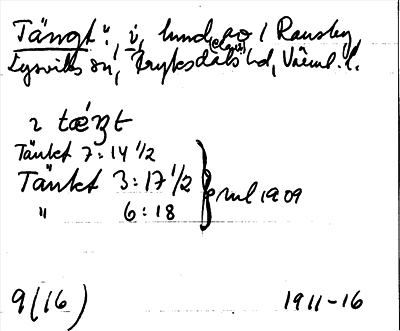 Tängt", i, hmd o / Ransby
Lysviks sn, Fryksdals hd, Värml. l.
2 tæŋt
Täñkt 7:14 1/2
Täñkt 3:17 1/2
" 6:18
rul 1909
9(16)
1911-16